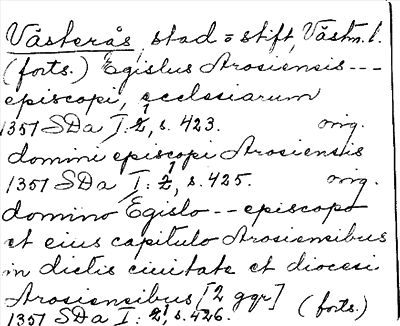 Västerås, stad = stift, Västm. l.
(forts.) Egislus Arosiensis ---
episcopi, ecclesiarum
1357 SDa I: 2, s. 423. orig.
domini episcopi Arosiensis
1357 SDa I: 2, s. 425. orig.
domino Egislo -- episcopo
et eius capitulo Arosiensibus
in dictis ciuitate et diocesi
Arosiensibus [2 ggr]
1357 SDa I: 2, s. 426. (forts.)